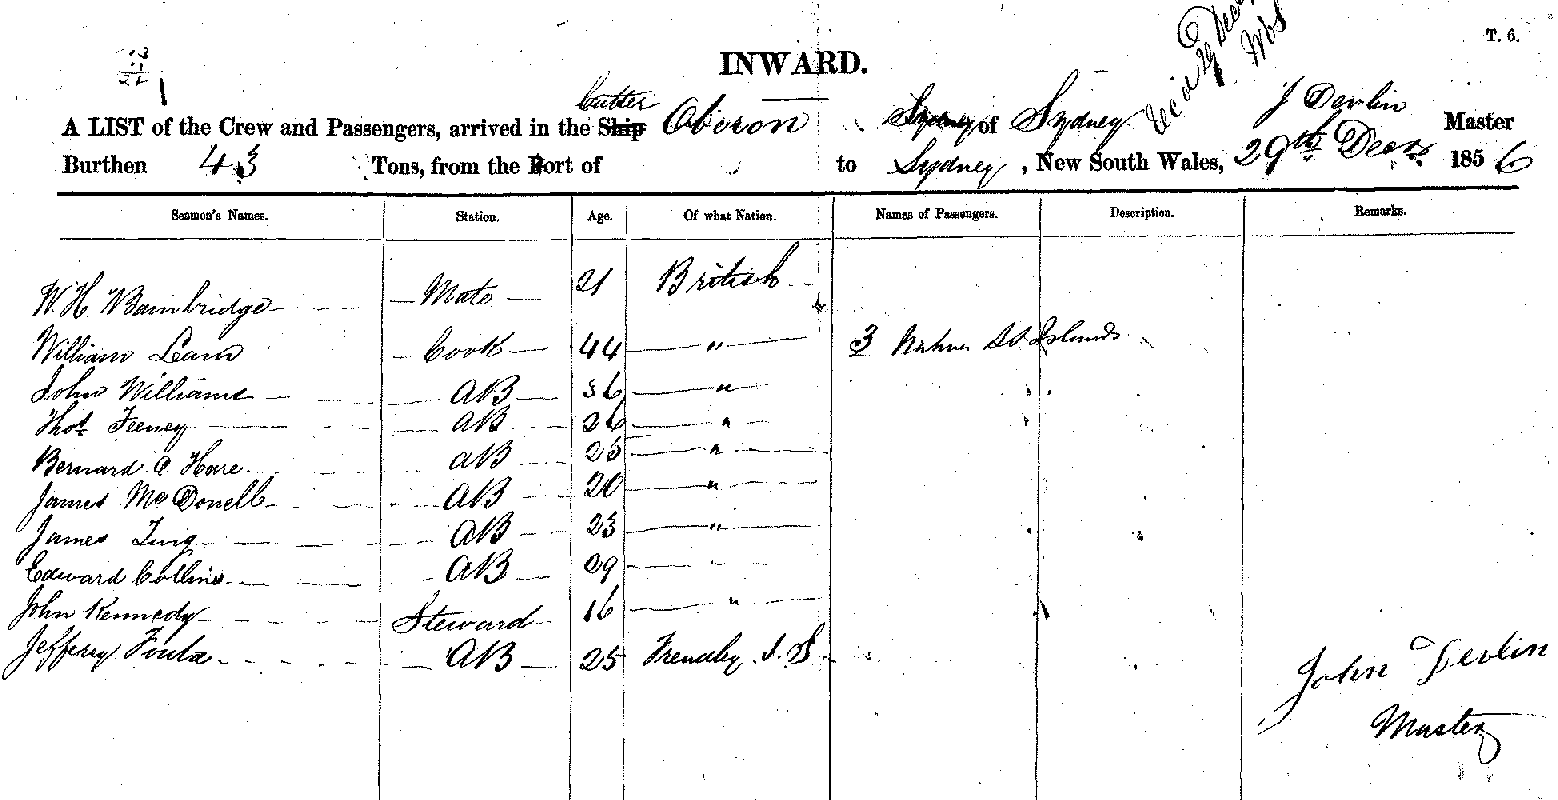 T. 6.
INWARD.
cutter
A LIST of the Crew and Passengers, arrived in the Ship Oberon Sydney of Sydney J Devlin Master
Burthen 43 Tons, from the Port of to Sydney, New South Wales, 29th Decr. 1856
Seamen's Names. Station. Age. Of what Nation. Names of Passengers. Description. Remarks.
W. H Bambridge Mate 21 British
William Leam Cook 44 " 3 Native S S Islands
John Williams AB 36 "
Thos. Feeney AB 26 "
Bernard O Hare AB 25 "
James McDonell AB 20 "
James Ting AB 23 "
Edward Collins AB 29 "
John Kennedy Steward 16 "
Jeffery AB 25 Frendley I. S
John Devlin
Master